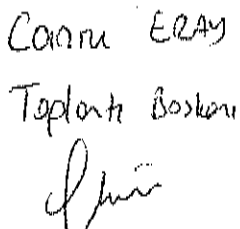 Cannu ERAY
Toplantı Başkanı